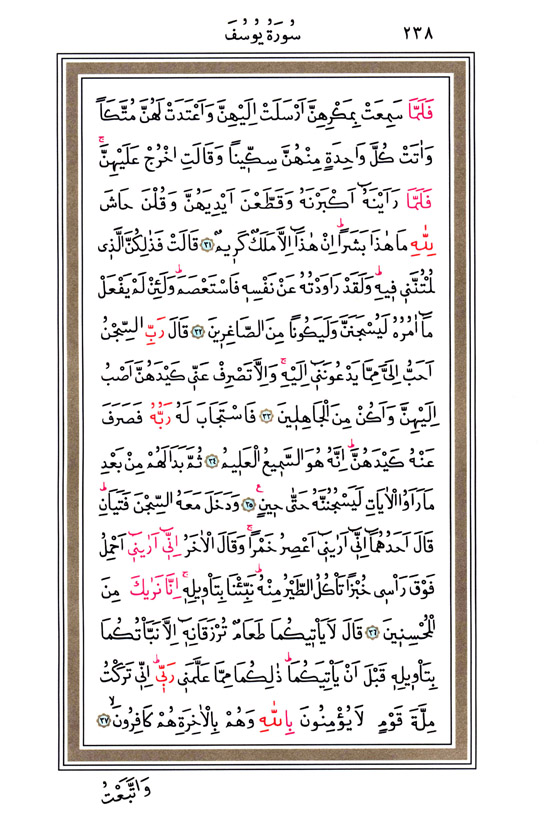 ٢٣٨
سُورَةُ يُوسُفَ
فَلَمَّا سَمِعَتْ بِمَكْرِهِنَّ اَرْسَلَتْ اِلَيْهِنَّ وَاَعْتَدَتْ لَهُنَّ مُتَّكَـًٔا
وَاٰتَتْ كُلَّ وَاحِدَةٍ مِنْهُنَّ سِكّ۪ينًا وَقَالَتِ اخْرُجْ عَلَيْهِنَّۚ
فَلَمَّا رَاَيْنَهُٓ اَكْبَرْنَهُ وَقَطَّعْنَ اَيْدِيَهُنَّ وَقُلْنَ حَاشَ
لِلّٰهِ مَا هٰذَا بَشَرًاۜ اِنْ هٰذَٓا اِلَّا مَلَكٌ كَر۪يمٌ ﴿٣١﴾ قَالَتْ فَذٰلِكُنَّ الَّذ۪ي
لُمْتُنَّن۪ي ف۪يهِۜ وَلَقَدْ رَاوَدْتُهُ عَنْ نَفْسِه۪ فَاسْتَعْصَمَۜ وَلَئِنْ لَمْ يَفْعَلْ
مَٓا اٰمُرُهُ لَيُسْجَنَنَّ وَلَيَكُونًا مِنَ الصَّاغِر۪ينَ ﴿٣٢﴾ قَالَ رَبِّ السِّجْنُ
اَحَبُّ اِلَيَّ مِمَّا يَدْعُونَن۪ٓي اِلَيْهِۚ وَاِلَّا تَصْرِفْ عَنّ۪ي كَيْدَهُنَّ اَصْبُ
اِلَيْهِنَّ وَاَكُنْ مِنَ الْجَاهِل۪ينَ ﴿٣٣﴾ فَاسْتَجَابَ لَهُ رَبُّهُ فَصَرَفَ
عَنْهُ كَيْدَهُنَّۜ اِنَّهُ هُوَ السَّم۪يعُ الْعَل۪يمُ ﴿٣٤﴾ ثُمَّ بَدَا لَهُمْ مِنْ بَعْدِ
مَا رَاَوُا الْاٰيَاتِ لَيَسْجُنُنَّهُ حَتّٰى ح۪ينٍ۟ ﴿٣٥﴾ وَدَخَلَ مَعَهُ السِّجْنَ فَتَيَانِۜ
قَالَ اَحَدُهُمَٓا اِنّ۪ٓي اَرٰين۪ٓي اَعْصِرُ خَمْرًاۚ وَقَالَ الْاٰخَرُ اِنّ۪ٓي اَرٰين۪ٓي اَحْمِلُ
فَوْقَ رَأْس۪ي خُبْزًا تَأْكُلُ الطَّيْرُ مِنْهُۜ نَبِّئْنَا بِتَأْو۪يلِه۪ۚ اِنَّا نَرٰيكَ مِنَ
الْمُحْسِن۪ينَ ﴿٣٦﴾ قَالَ لَا يَأْت۪يكُمَا طَعَامٌ تُرْزَقَانِه۪ٓ اِلَّا نَبَّأْتُكُمَا
بِتَأْو۪يلِه۪ قَبْلَ اَنْ يَأْتِيَكُمَاۜ ذٰلِكُمَا مِمَّا عَلَّمَن۪ي رَبّ۪يۜ اِنّ۪ي تَرَكْتُ
مِلَّةَ قَوْمٍ لَا يُؤْمِنُونَ بِاللّٰهِ وَهُمْ بِالْاٰخِرَةِ هُمْ كَافِرُونَۙ ﴿٣٧﴾
وَاتَّبَعْتُ